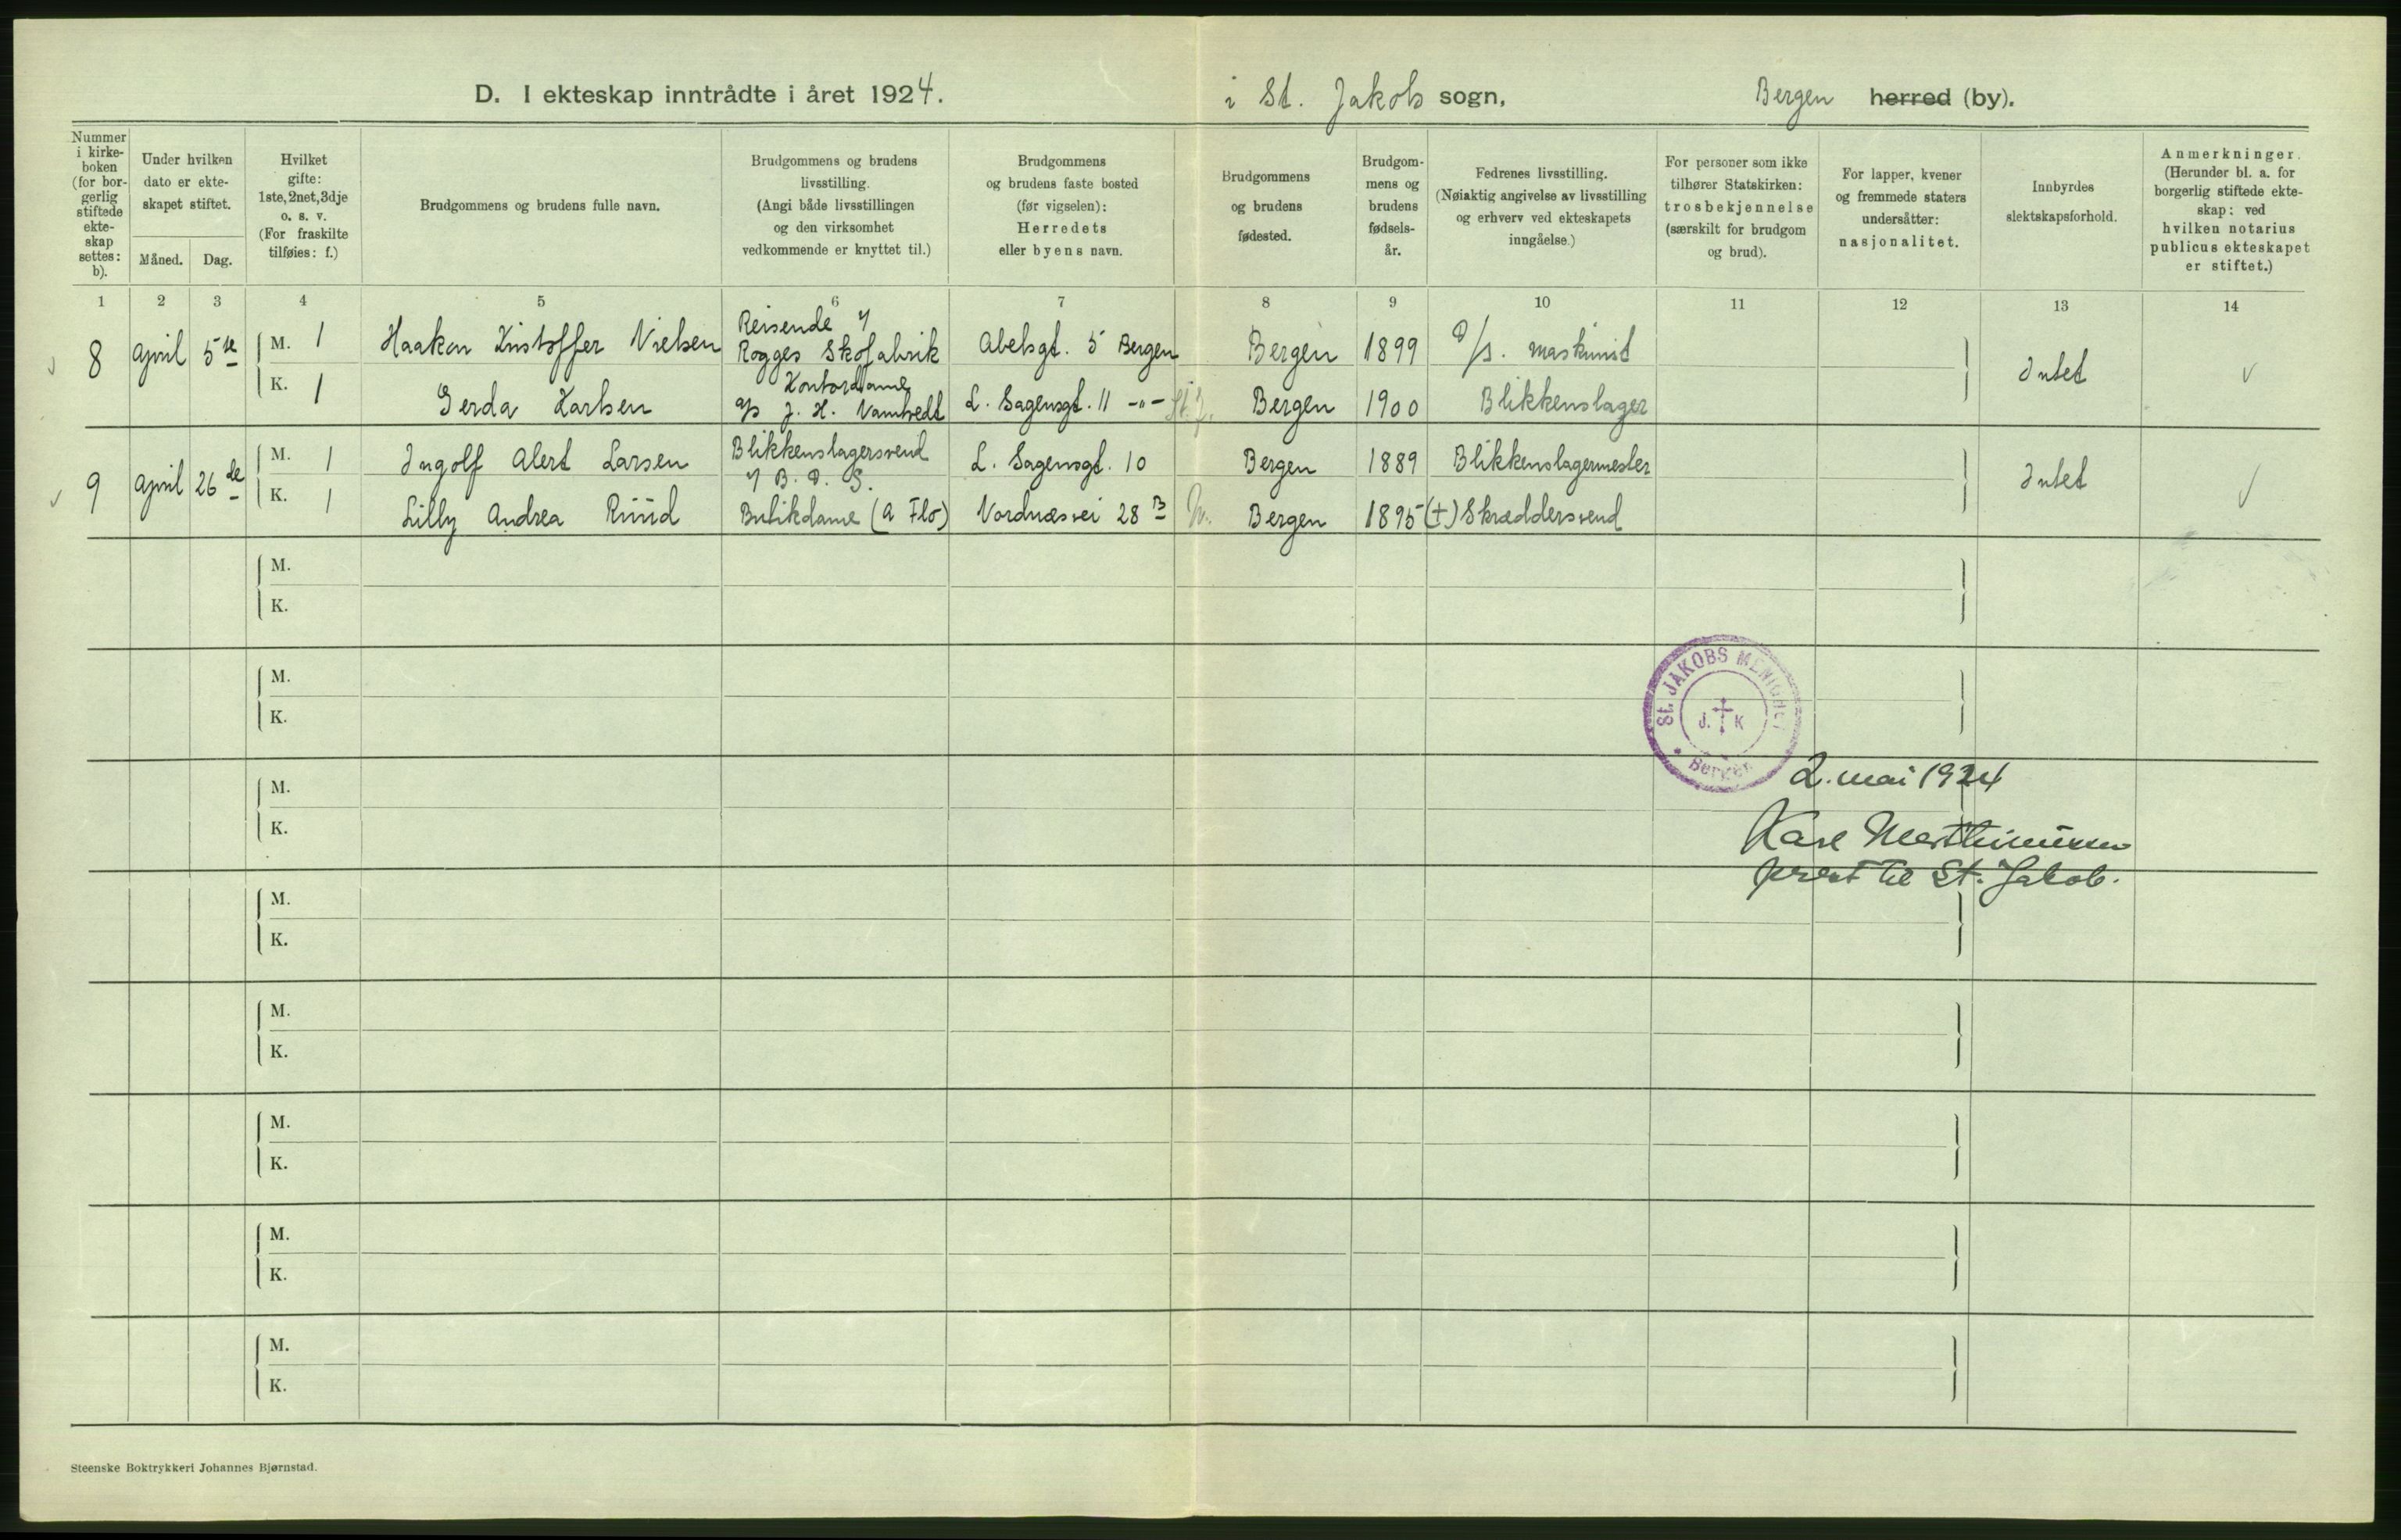 D. I ekteskap inntrådte i året 1924.
i St. Jakobs sogn, Bergen herred (by).
Nummer i kirkeboken (for borgerlig stiftede ekteskap settes: b).
Under hvilken dato er ekteskapet stiftet.
Måned. Dag.
Hvilket gifte: 1ste, 2net, 3dje o. s. v. (For fraskilte tilføies: f.)
Brudgommens og brudens fulle navn.
Brudgommens og brudens livsstilling. (Angi både livsstillingen og den virksomhet vedkommende er knyttet til.)
Brudgommens og brudens faste bosted (før vigselen): Herredets eller byens navn.
Brudgommens og brudens fødested.
Brudgommens og brudens fødselsår.
Fedrenes livsstilling. (Nøiaktig angivelse av livsstilling og erhverv ved ekteskapets inngåelse.)
For personer som ikke tilhører Statskirken: trosbekjennelse (særskilt for brudgom og brud).
For lapper, kvener og fremmede staters undersåtter: nasjonalitet.
Innbyrdes slektskapsforhold.
Anmerkninger. (Herunder bl. a. for borgerlig stiftede ekteskap: ved hvilken notarius publicus ekteskapet er stiftet.)
1 2 3 4 5 6 7 8 9 10 11 12 13 14
8 April 5te M. 1 Haakon Kristoffer Nielsen Reisende Rogges Skofabrik Abelsgt. 5 Bergen Bergen 1899 D/S. maskinist Intet
K. 1 Gerda Karlsen Kontordame J. H. L. Sagensgt. 11 -"- St. J. Bergen 1900 Blikkenslager
9 April 26de M. 1 Ingolf Alert Larsen Blikkenslagersvend B. D. S. L. Sagensgt. 10 Bergen 1889 Blikkenslagermester Intet
K. 1 Lilly Andrea Ruud Butikdame (A Flo) Nordnæsvei 28 B N. Bergen 1895 (+) Skræddersvend
M.
K.
M.
K.
St. JAKOBS MENIGHET
J. K
Bergen
M.
K.
2. mai 1924
Kåre Marthinussen
prest til St. Jakob.
M.
K.
M.
K.
M.
K.
M.
K.
M.
K.
Steenske Boktrykkeri Johannes Bjørnstad.